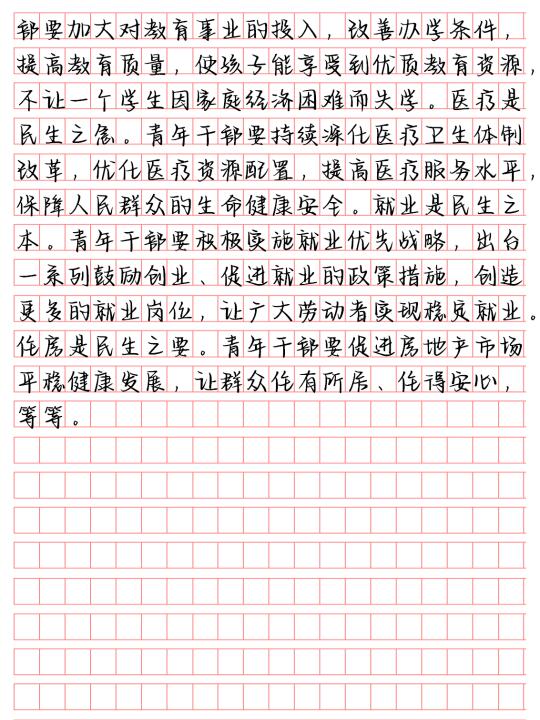 部要加大对教育事业的投入，改善办学条件，
提高教育质量，使孩子能享受到优质教育资源，
不让一个学生因家庭经济困难而失学。医疗是
民生之急。青年干部要持续深化医疗卫生体制
改革，优化医疗资源配置，提高医疗服务水平，
保障人民群众的生命健康安全。就业是民生之
本。青年干部要积极实施就业优先战略，出台
一系列鼓励创业、促进就业的政策措施，创造
更多的就业岗位，让广大劳动者实现稳定就业。
住房是民生之要。青年干部要促进房地产市场
平稳健康发展，让群众住有所居、住得安心，
等等。